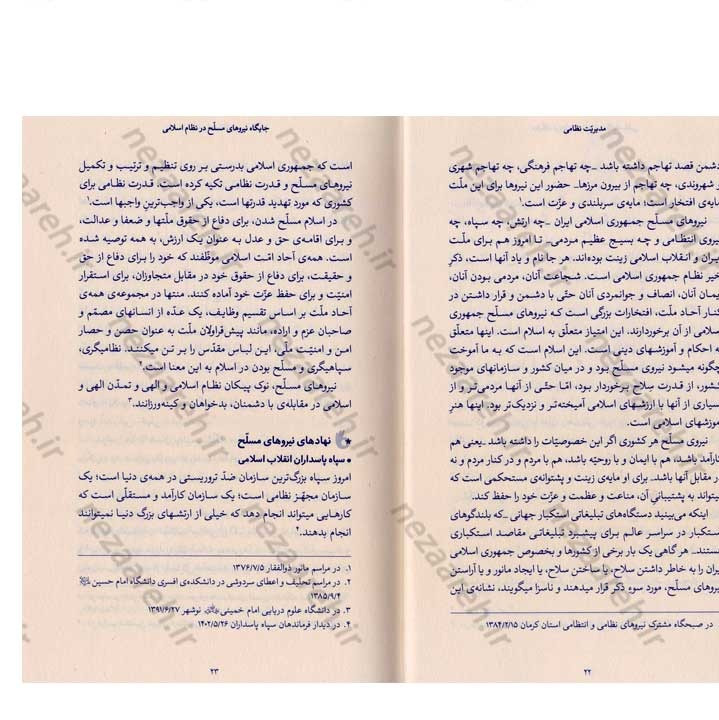 مدیریّت نظامی
دشمن قصد تهاجم داشته باشد _چه تهاجم فرهنگی، چه تهاجم شهری
شهروندی، چه تهاجم از بیرون مرزها_ حضور این نیروها برای این ملّت
مایه‌ی افتخار است؛ مایه‌ی سربلندی و عزّت است.۱
نیروهای مسلّح جمهوری اسلامی ایران _چه ارتش، چه سپاه، چه
نیروی انتظامی و چه بسیج عظیم مردمی_ تا امروز هم برای ملّت
ایران و انقلاب اسلامی زینت بوده‌اند. هر جا نام و یاد آنها است، ذکر
خیر نظام جمهوری اسلامی است. شجاعت آنان، مردمی بودن آنان،
ایمان آنان، انصاف و جوانمردی آنان حتّی با دشمن و قرار داشتن در
کنار آحاد ملّت، افتخارات بزرگی است کـه نیروهای مسلّح جمهوری
اسلامی از آن برخوردارند. این امتیاز متعلّق به اسلام است. اینها متعلّق
به احکام و آموزشهای دینی است. این اسلام است که به ما آموخت
چگونه میشود نیروی مسلّح بود و در میان کشور و سازمانهای موجود
کشور، از قدرت سِلاح برخوردار بود، امّا حتّی از آنها مردمی‌تر و از
بسیاری از آنها با ارزشهای اسلامی آمیخته‌تر و نزدیک‌تر بود. اینها هنر
آموزشهای اسلامی است.
نیروی مسلّح هر کشوری اگر این خصوصیّات را داشته باشد _یعنی هم
کارآمد باشد، هم با ایمان و با روحیّه باشد، هم با مردم و در کنار مردم و نه
در مقابل آنها باشد_ برای او مایه‌ی زینت و پشتوانه‌ی مستحکمی است که
میتواند به پشتیبانیِ آن، مناعت و عظمت و عزّت خود را حفظ کند.
اینکه می‌بینید دستگاه‌های تبلیغاتی استکبار جهانی _که بلندگوهای
استکبار در سراسر عالم برای پیشبرد تبلیغاتی مقاصد استکباری
هستند_ هر گاهی یک بار برخی از کشورها و بخصوص جمهوری اسلامی
ایران را به خاطر داشتن سلاح، یا ساختن سلاح، یا ایجاد مانور و یا آراستن
نیروهای مسلّح، مورد سوء ذکر قرار میدهند و ناسزا میگویند، نشانه‌ی این
در صبحگاه مشترک نیروهای نظامی و انتظامی استان کرمان ۱۳۸۴/۲/۱۵
۲۲
جایگاه نیروهای مسلّح در نظام اسلامی
است که جمهوری اسلامی بدرستی بر روی تنظیم و ترتیب و تکمیل
نیروهای مسلّح و قدرت نظامی تکیه کرده است. قدرت نظامی برای
کشوری که مورد تهدید قدرتها است، یکی از واجب‌ترین واجبها است.۱
در اسلام مسلّح شدن، برای دفاع از حقوق ملّتها و ضعفا و عدالت،
و برای اقامه‌ی حق و عدل به عنوان یک ارزش، به همه توصیه شده
است. همه‌ی آحاد امّت اسلامی موظّفند که خود را برای دفاع از حق
و حقیقت، برای دفاع از حقوق خود در مقابل متجاوزان، برای استقرار
امنیّت و برای حفظ عزّت خود آماده کنند. منتها در مجموعه‌ی همه‌ی
آحاد ملّت بر اساس تقسیم وظایف، یک عدّه از انسانهای مصمّم و
صاحبان عزم و اراده، مانند پیش‌قراولان ملّت به عنوان حصن و حصار
امن و امنیّت ملّی، این لباس مقدّس را بر تن میکنند. نظامیگری،
سپاهیگری و مسلّح بودن در اسلام به این معنا است.۲
نیروهای مسلّح، نوک پیکان نظام اسلامی و الهی و تمدّن الهی و
اسلامی در مقابله‌ی با دشمنان، بدخواهان و کینه‌ورزانند.۳
★ نهادهای نیروهای مسلّح
● سپاه پاسداران انقلاب اسلامی
امروز سپاه بزرگ‌ترین سازمان ضدّ تروریستی در همه‌ی دنیا است؛ یک
سازمان مجهّز نظامی است؛ یک سازمان کارآمد و مستقلّی است که
کارهایی میتواند انجام دهد که خیلی از ارتشهای بزرگ دنیا نمیتوانند
انجام بدهند.۴
۱. در مراسم مانور ذوالفقار ۱۳۷۶/۷/۵
۲. در مراسم تحلیف و اعطای سردوشی در دانشکده‌ی افسری دانشگاه امام حسین
۱۳۸۵/۹/۴
۳. در دانشگاه علوم دریایی امام خمینی نوشهر ۱۳۹۱/۶/۲۷
۴. در دیدار فرماندهان سپاه پاسداران ۱۴۰۲/۵/۲۶
۲۳
nezaareh.ir
nezaareh.ir
nezaareh.ir
nezaareh.ir
nezaareh.ir
nezaareh.ir